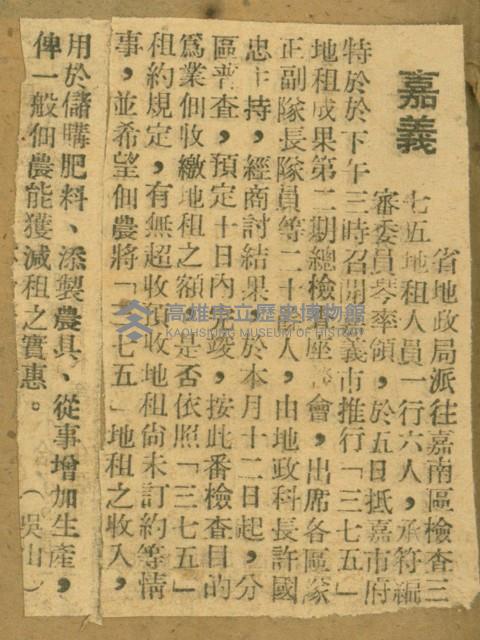 嘉義
省地政局派往嘉南區檢查三
七五地租人員一行六人，承符編
審委員琴率領，於五日抵嘉市府
特於於下午三時召開嘉義市推行「三七五」
地租成果第二期總檢查座 會，出席各區隊
正副隊長隊員等二十 人，由地政科長許國
忠主持，經商討結果 於本月十二日起，分
區普查，預定十日內 竣，按此番檢查目的
爲業佃收繳地租之額，是否依照「三七五」
租約規定，有無超收預收地租尙未訂約等情
事，並希望佃農將「三七五」地租之收入，
用於儲購肥料、添製農具、從事增加生產，
俾一般佃農能獲減租之實惠。（吳山）
高雄市立歷史博物館
KAOHSIUNG MUSEUM OF HISTORY